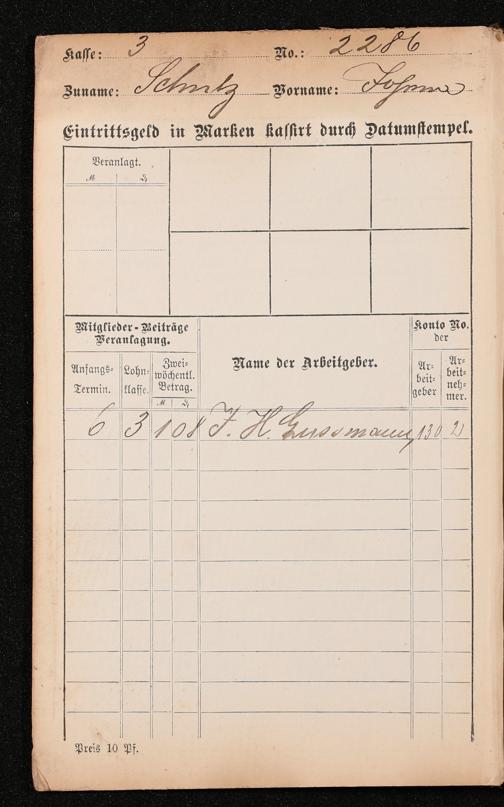 Kasse: 3 No.: 2286
Zuname: Schulz Vorname:
Eintrittsgeld in Marken kassirt durch Datumstempel.
Veranlagt.
M ₰
Mitglieder-Beiträge Veranlagung.
Konto No. der
Anfangs-Termin.
Lohn-klasse.
Zwei-wöchentl. Betrag.
M ₰
Name der Arbeitgeber.
Ar-beit-geber
Ar-beit-neh-mer.
6 3 1 08 F. H. Gussmann 130 2
Preis 10 Pf.